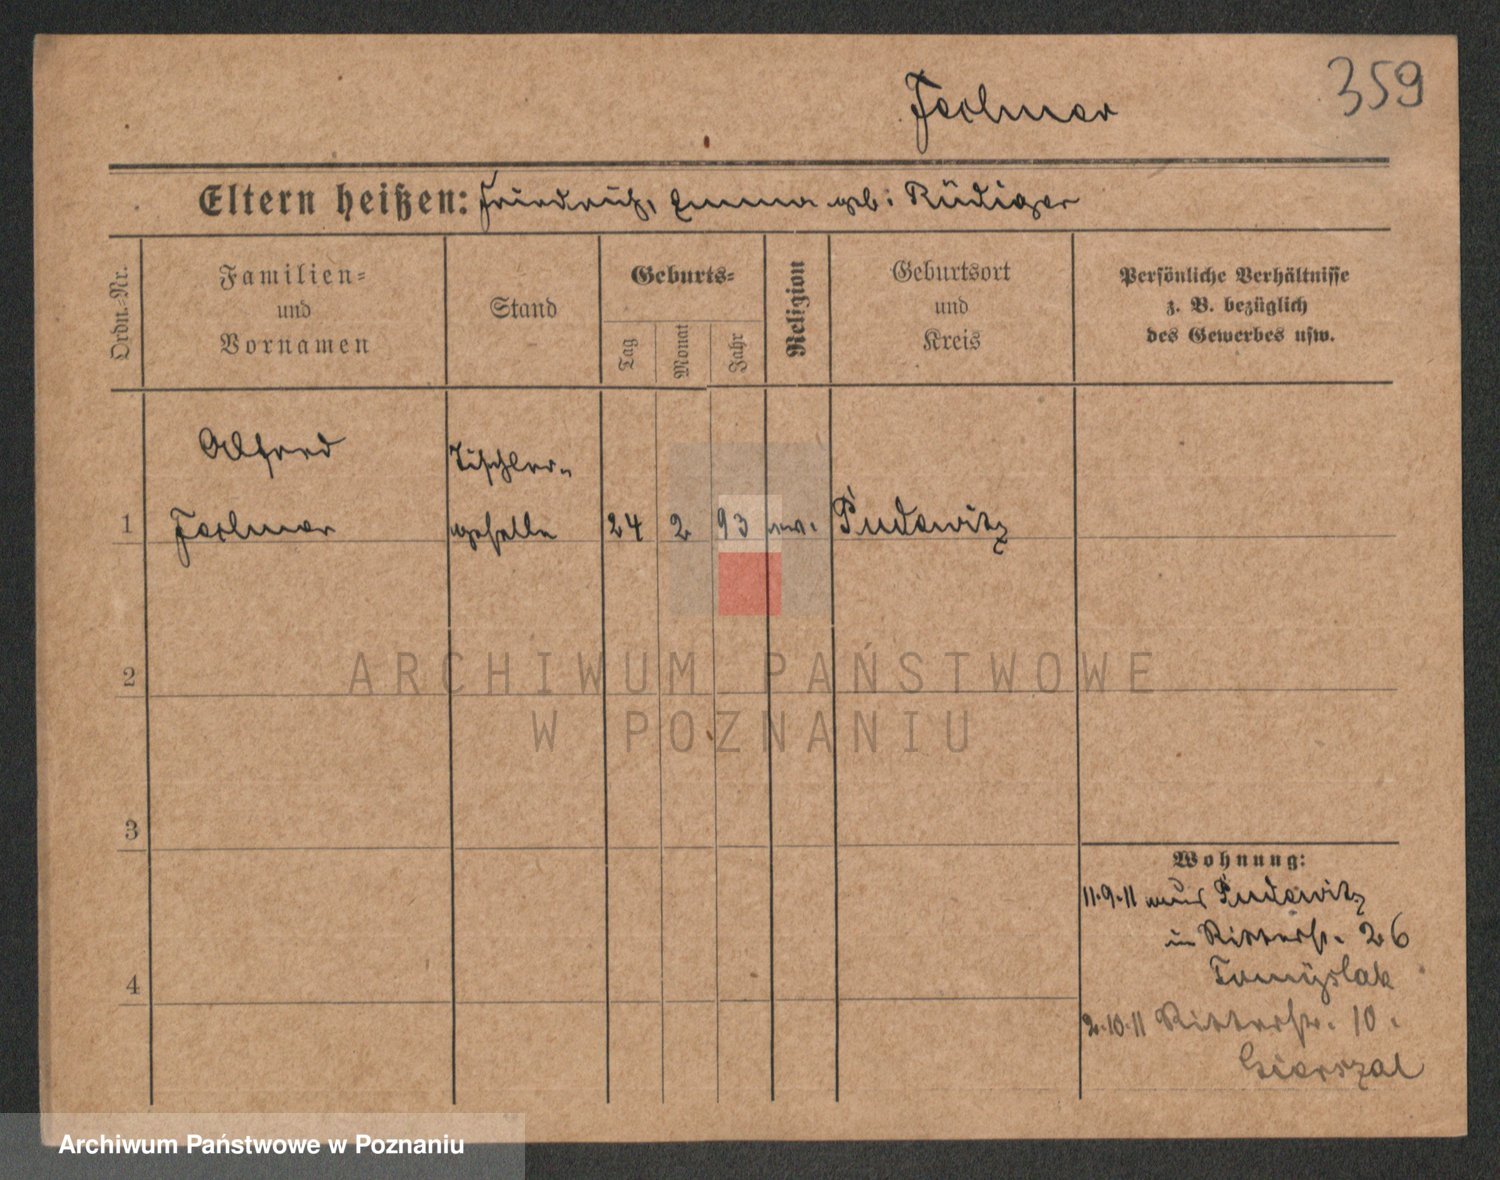 359
Folmer
Eltern heißen: Friedrich, Emma geb: Rüdiger
Ordn.-Nr.
Familien-
und
Vornamen
Stand
Geburts-
Tag
Monat
Jahr
Religion
Geburtsort
und
Kreis
Persönliche Verhältnisse
z. B. bezüglich
des Gewerbes usw.
Alfred
Tischler-
1 Folmer geselle 24 2 93 ev. Pudewitz
2
3
4
Wohnung:
11.9.11 aus Pudewitz
in Ritterstr. 26
Tomÿslak
2.10.11 Ritterstr. 10.
Gierszal
ARCHIWUM PAŃSTWOWE
W POZNANIU
Archiwum Państwowe w Poznaniu